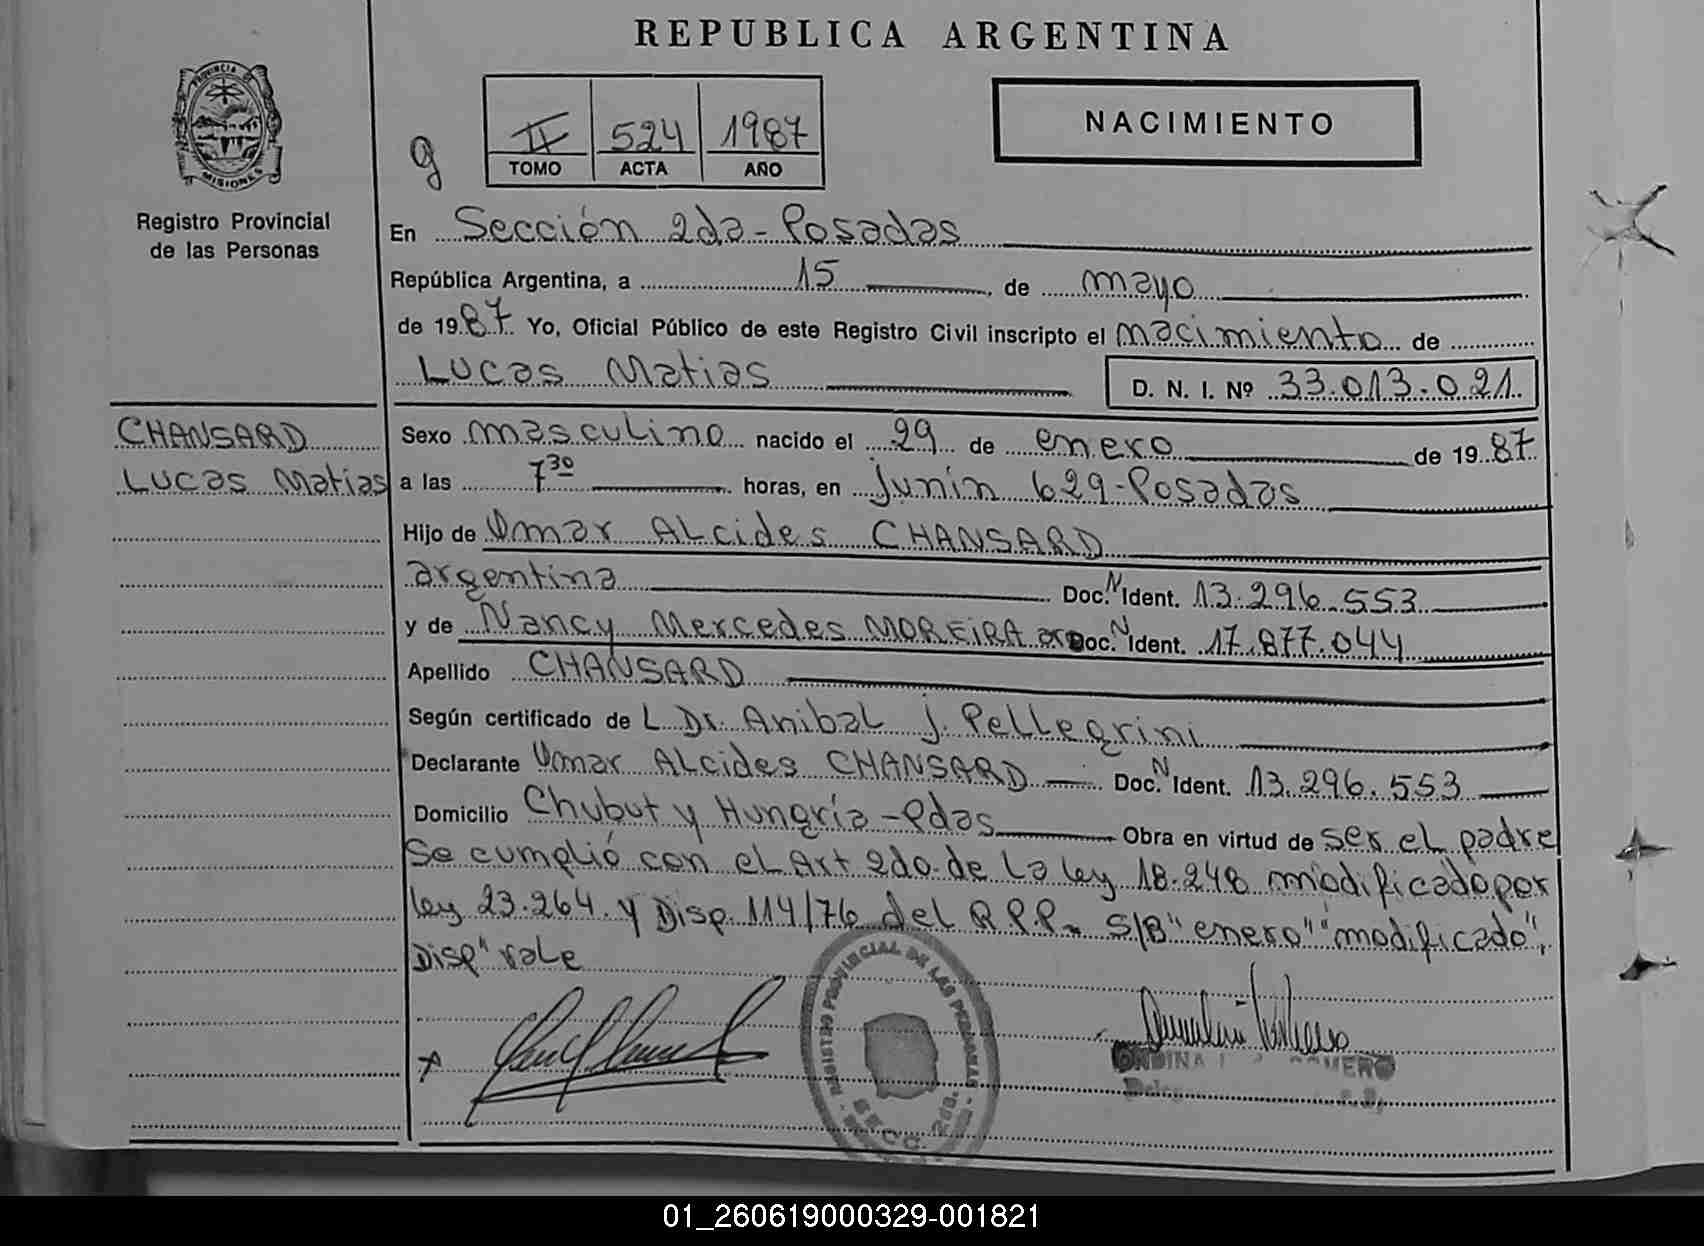 REPUBLICA ARGENTINA
PROVINCIA DE
MISIONES
Registro Provincial
de las Personas
g
II 524 1987
TOMO ACTA AÑO
NACIMIENTO
En Sección 2da - Posadas
República Argentina, a 15, de mayo
de 1987 Yo, Oficial Público de este Registro Civil inscripto el nacimiento de
Lucas Matias D. N. I. Nº 33.013.021
CHANSARD
Lucas Matias
Sexo masculino nacido el 29 de enero de 1987
a las 7 30 horas, en Junin 629-Posadas
Hijo de Omar Alcides CHANSARD
argentina Doc. N Ident. 13.296.553
y de Nancy Mercedes MOREIRA arg Doc. N Ident. 17.877.044
Apellido CHANSARD
Según certificado de L Dr. Anibal J. Pellegrini
Declarante Omar Alcides CHANSARD Doc. N Ident. 13.296.553
Domicilio Chubut y Hungría - Pdas Obra en virtud de ser el padre
Se cumplió con el Art 2do. de la ley 18.248 modificado por
ley 23.264. y Disp. 114/76 del R.P.P. S/B "enero" "modificado",
Disp" vale
REGISTRO PROVINCIAL DE LAS PERSONAS
SECC. 2da.
ONDINA ROMERO
01_260619000329-001821